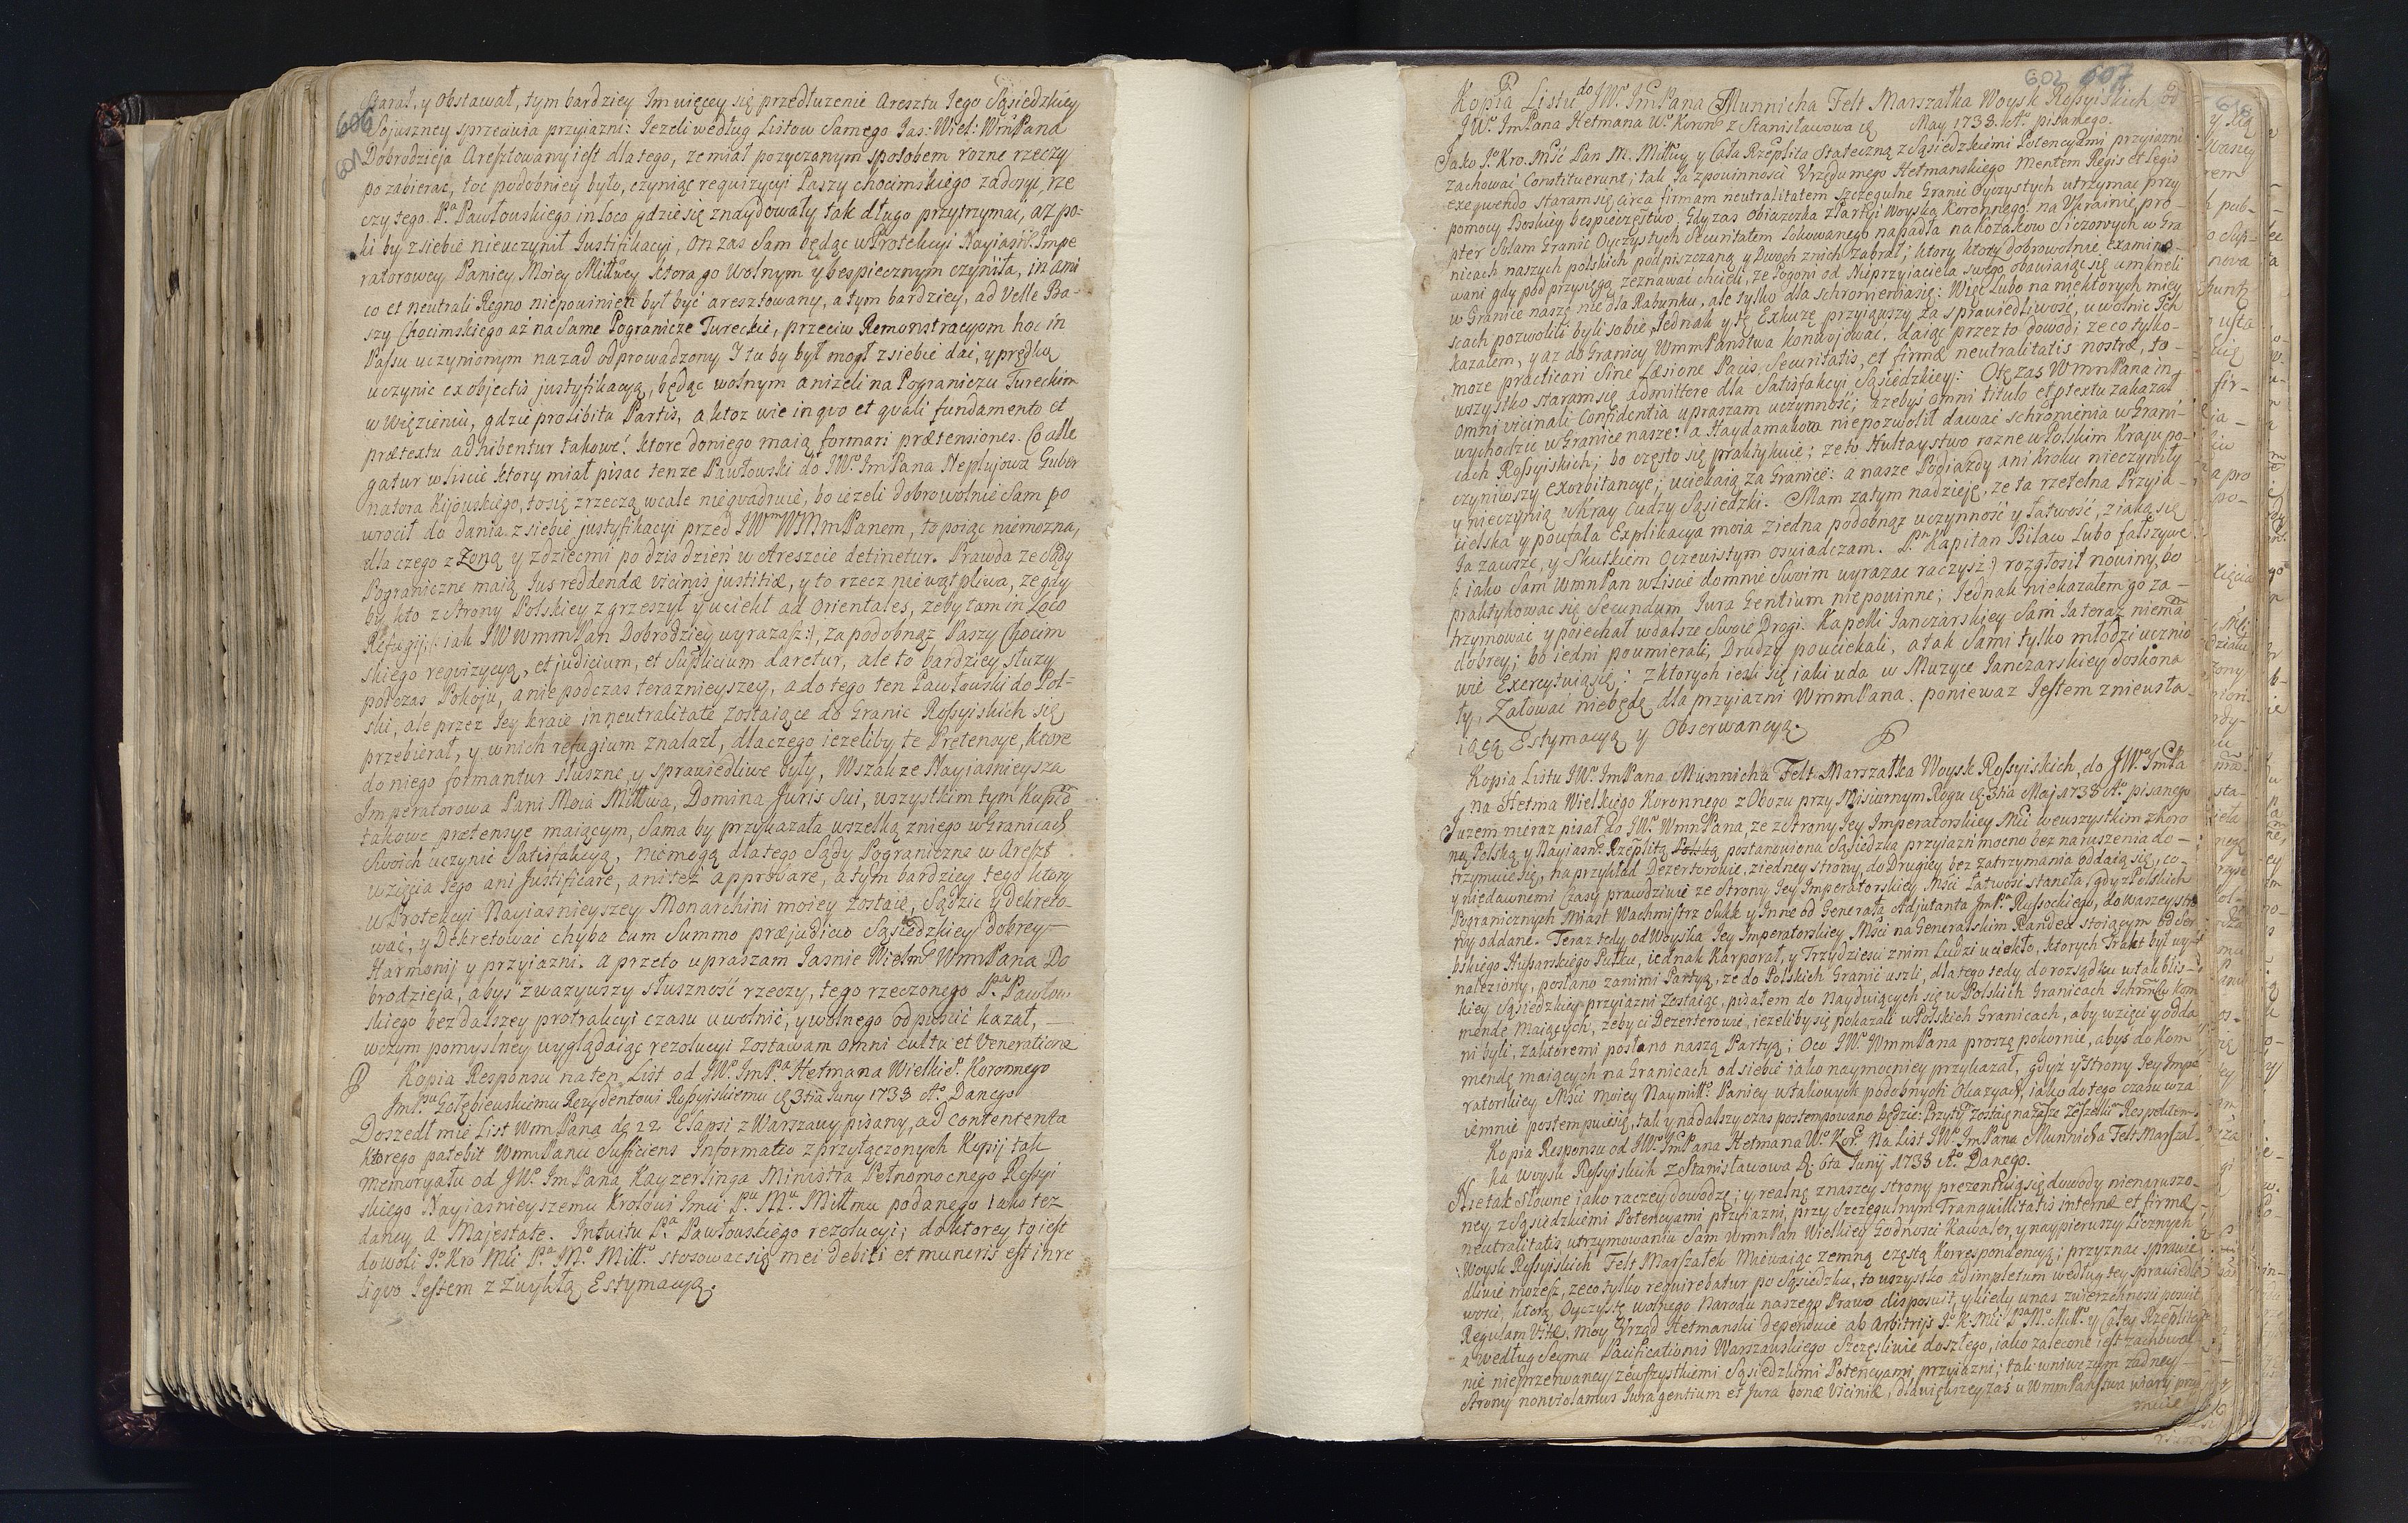 606
601
Starał, y Obstawał, tym bardziey Im więcey się przedłuzenie Aresztu Iego Sąsiedzkiey
Sojuszney sprzeciwia przyiazni: Iezeli według Listow Samego Ias: Wiel: WmPana
Dobrodzieja Aresztowany iest dla tego, ze miał pozyczanym sposobem rozne rzeczy
po zabierac, toc podobniey było, czyniąc requizycyi Paszy chocimskiego zadosyć, rze
czy tego Pa. Pawłowskiego in Loco gdzie się znaydowały tak długo przytrzymac, az po-
ki by z siebie nieuczynił Iustifikacyi, on zas Sam będąc w Protekcyi Nayiaśń. Impe
ratorowey Paniey Moiey Miłłwey ktora go Wolnym y bespiecznym czyniła, in ami
co et neutrali Regno niepowinien był być aresztowany, a tym bardziey, ad Velle Ba-
szy Chocimskiego aż na Same Pogranicze Tureckie, przeciw Remonstracyom hoc in
Passu uczynionym nazad odprowadzony I tu by był mogł z siebie dać, y prędką
uczynic ex objectis justyfikacyą, będąc wolnym anizeli na Pograniczu Tureckim
w Więzieniu, gdzie prolibita Partis, a ktoz wie in quo et quali fundamento et
prætextu adhibentur takowe! ktore do niego maią formari prætensiones. Co alle
gatur w Liscie ktory miał pisac tenze Pawłowski do JWo. ImPana Neplujowa Guber
natora Kijowskiego, to się z rzeczą wcale nieqvadruie, bo iezeli dobrowolnie Sam po
wrocił do dania z siebie justyfikacyi przed JWm WMmPanem, to poiąc niemozna,
dla czego z Zoną y z dziecmi po dzis dzień w Areszcie detinetur. Prawda ze Sądy
Pograniczne maią Ius reddendæ vicinis justitiæ, y to rzecz nie wątpliwa, ze gdy
by kto z Strony Polskiey zgrzeszył y uciekł ad Orientales, zeby tam in Loco
Refugij /: iak JWwmmPan Dobrodziey wyrazasz :/, za podobnąz Paszy Chocim
skiego reqvizycyą, et judicium, et Suplicium daretur, ale to bardziey służy
podczas Pokoju, a nie podczas teraznieyszey, a do tego ten Pawłowski do Pol-
ski, ale przez Jey kraie in neutralitate zostaiące do Granic Rossyiskich się
przebierał, y w nich refugium znalazł, dlaczego iezeliby te Pretensye, ktore
do niego formantur słuszne y sprawiedliwe były, Wszakze Nayiasnieysza
Imperatorowa Pani Moia Miłłwa, Domina Juris Sui, wszystkim tym
takowe prætensye maiącym, Sama by przykazała wszelką z niego w Granicach
Swoich uczynic Satisfakcyą, niemogą dlatego Sądy Pograniczne w Areszt
wzięcia tego ani Justificare, ani też approbare, a tym bardziey tego ktory
w Protekcyi Nayiasnieyszey Monarchini moiey zostaie, Sądzic y dekreto-
wać, y Dekretować chyba cum Summo præjudicio Sąsiedzkiey dobrey
Harmonij y przyiazni. a przeto upraszam Iasnie Wielmo WmmPana Do
brodzieja, abyś zwazywszy słuszność rzeczy, tego rzeczonego Pa. Pawłow
skiego bez dalszey protrakcyi czasu uwolnić, y wolnego odpuscić kazał, —
w czym pomyslney wyglądaiąc rezolucyi zostawam omni cultu et Veneratione
Kopia Responsu na ten List od JWo. ImPa. Hetmana Wielkie. Koronnego
ImPu. Gołębiewskiemu Rezydentowi Rossyiskiemu d. 3tia Iuny 1738 Ao. Danego
Doszedł mie List WmPana de 22 Elapsi z Warszawy pisany, ad contenta
ktorego patebit WmmPanu Sufficiens Informatio z przyłączonych Kopij tak
memoryału od JWo. ImPana Kayzerlinga Ministra Pełnomocnego Rossyi
skiego Nayiasnieyszemu Krolowi Imci Pu. Mu. Miłłmu podanego iako tez
daney a Majestate. Intuitu Pa. Pawłowskiego rezolucyi; do ktorey to iest
do woli Jo. Kro Mći Pa. Mo. Miłło. stosowac się mei debiti et muneris est in re
liqvo Iestem z Zwykłą Estymacyą.
602 607
Kopia Listu do JWo. ImPana Munnicha Felt Marszałka Woysk Rossyiskich od
JWo. ImPana Hetmana Wo. Korono z Stanisławowa d. May 1738. Ao. pisanego.
Jako Jo. Kro. Mść Pan M. Miłćiwy y Cała Rzeplita Stateczną z Sąsiedzkiemi Potencyami przyiazni
zachować Constituerunt; tak Ia z powinności Vrzędu mego Hetmanskiego Mentem Regis et Legis
exeqwendo staram się circa firmam neutralitatem szczegulne Granic Oyczystych utrzymac przy
pomocy Boskiey bespieczęstwo. Gdy zas Obiazczka z Partyi Woyska Koronnego: na Vkrainie pro-
pter Solam Granic Oyczystych Securitatem Lokowanego napadła na kozakow Siczowych w Gra
nicach naszych polskich podpiszczaną y Dwoch z nich zabrał; ktory ktory dobrowolnie examino-
wani gdy pod przysięgą zeznawać chcieli, ze Pogoni od Nieprzyiaciela swego obawiaiąc się umkneli
w Granice naszę nie dla Rabunku, ale tylko dla schronienia się: Więc Lubo na niektorych miey
scach pozwolili byli sobie, Iednak y tę Exkuzę przyiąwszy za sprawiedliwość, uwolnic Ich
kazałem, y az do Granicy WmmPaństwa konwojować, daiąc przez to dowodi ze co tylko-
moze practicari Sine Læsione Pacis, Securitatis, et firmæ neutralitatis nostræ, to-
wszystko staram się admittere dla Satisfakcyi Sąsiedzkiey: Otę zas WmmPana in
omni vicinali Confidentia upraszam uczynność; azebyś omni titulo et ptextu zakazał
wychodzic w Granice nasze: a Haydamakow niepozwolił dawać schronienia w Grani-
cach Rossyiskich; bo często się praktykuie; ze to Hultaystwo rozne w Polskim Kraju po-
czyniwszy exorbitancye; uciekaią za Granice: a nasze Podiazdy ani kroku nieczyniły
y nieczynią w kray Cudzy Sąsiedzki. Mam zatym nadzieję, ze ta rzetelna Przyia-
cielska y poufała Explikacya moia ziedna podobnąz uczynność y łatwość, z iaką się
Ia zawsze, y Skutkiem Oczewistym oswiadczam. Pn. Kapitan Bilaw Lubo fałszywe
/: iako Sam WmmPan w Liscie do mnie Swoim wyrazac raczysz :/ rozgłosił nowiny, bo
praktykować się Secundum Iura Gentium niepowinne; Iednak niekazałem go za-
trzymować y poiechał w dalsze Swoie Drogi. Kapelli Ianczarskiey Sam Ia teraz niema
dobrey; bo iedni poumierali, Drudzy pouciekali, a tak Sami tylko młodzi ucznio
wie Exercytuią się: z ktorych iezli się iaki uda w Muzyce Ianczarskiey doskona
ły, Załować niebędę dla przyiazni WmmPana, poniewaz Iestem z nieusta-
iącą Estymacyą y Obserwancyą.
Kopia Listu JWo. ImPana Munnicha Felt Marszałka Woysk Rossyiskich, do JWo. ImPa
na Hetma Wielkiego Koronnego z Obozu przy Misiurnym Rogu d. 3tia Maj 1738 Ao. pisanego
Iuzem nieraz pisał do JWo. WmmPana, ze z strony Iey Imperatorskiey Mći we wszystkim z koro
ną Polską y Nayiasn. Rzeplitą Polską postanowiona Sąsiedzka przyiazń mocno bez naruszenia do-
trzymuie się, na przykład Dezerterowie, z iedney strony, do Drugiey bez zatrzymania oddaią się, co-
y niedawnemi Czasy prawdziwie ze Strony Iey Imperatorskiey Mści Łatwość staneła, gdy z Polskich
Pogranicznych Miast Wachmistrz Sukk y Inne od Generała Adjutanta ImPa. Russockiego, do waszey stro
ny oddane. Teraz tedy od Woyska Iey Imperatorskiey Mści na Generalskim Randeu stoiącym od Ser
bskiego Hussarskiego Pułku, iednak Karporał, y Trzydziesci z nim Ludzi uciekło, ktorych Trakt był wy
naleziony, posłano za nimi Partyą, ze do Polskich Granic uszli, dla tego tedy, do rozsądku w tak blis-
kiey Sąsiedzkiey przyiazni zostaiąc, pisałem do Nayduiących się w Polskich Granicach Ichmciow kom
mendę Maiących, zeby ci Dezerterowie, iezeliby się pokazali w Polskich Granicach, aby wzięci y odda
ni byli, za ktoremi posłano naszą Partyą; Oco JWo. WmmPana proszę pokornie, abyś do kom
mendę maiących na Granicach od siebie iako naymocniey przykazał, gdyż y z strony Iey Impe
ratorskiey Mści moiey Naymiło. Paniey w takowych podobnych Okazyach, iako do tego czasu wza
iemnie postempuie się, tak y na dalszy czas postempowano będzie: Przytym zostaię na zawsze z Respektem
Kopia Responsu od JWo. ImPana Hetmana Wo. Kor. Na List JWo. ImPana Munnicha Felt Marszał-
ka woysk Rossyiskich z Stanisławowa d: 6ta Junij 1738 Ao. Danego.
Nie tak słowne iako raczey dowodzę; y realne z naszey strony prezentuią się dowody nienaruszo-
ney z Sąsiedzkiemi Potencyami przyiazni, przy szczegulnym Tranquillitatis internæ et firmæ
neutralitatis utrzymowaniu Sam WmmPan Wielkiey Godności Kawaler, y naypierwszy Licznych
Woysk Rossyiskich Felt Marszałek Miewaiąc zemną częstą Korrespondencyą; przyznac sprawie
dliwie możesz, ze co tylko requirebatur po Sąsiedzku, to wszystko adimpletum według tey sprawiedli
wości, ktorą Oyczystę wolnego Narodu naszego Prawo disposuit, y kiedy u nas zwierzchność posuit
Regulam Vitæ, moy Vrząd Hetmanski dependuie ab Arbitrijs Jo. K. Mći Pa. Mo. Miło. y Całey Rzeplitey
a według Seymu Pacificationis Warszawskiego Szczęśliwie doszłego, iako zalecone iest zachowa-
nie nieprzerwaney zewszystkiemi Sąsiedzkimi Potencyami przyiazni; tak w niwczym zadney
Strony non violamus Iura gentium et Jura bonæ Viciniæ, dla większey zaś u WmmPaństwa wiary przy
muie